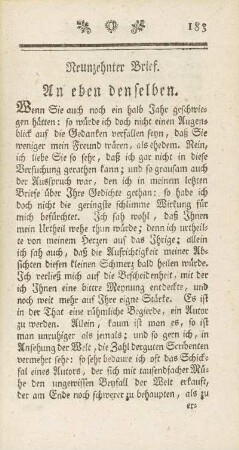 183
Neunzehnter Brief.
An eben denselben.
Wenn Sie auch noch ein halb Jahr geschwie-
gen hätten: so würde ich doch nicht einen Augen-
blick auf die Gedanken verfallen seyn, daß Sie
weniger mein Freund wären, als ehedem. Nein,
ich liebe Sie so sehr, daß ich gar nicht in diese
Versuchung gerathen kann; und so grausam auch
der Ausspruch war, den ich in meinem letzten
Briefe über Ihre Gedichte gethan: so habe ich
doch nicht die geringste schlimme Wirkung für
mich befürchtet. Ich sah wohl, daß Ihnen
mein Urtheil wehe thun würde; denn ich urtheilte
von meinem Herzen auf das Ihrige; allein ich
sah auch, daß die Aufrichtigkeit meiner Ab-
sichten diesen kleinen Schmerz bald heilen würde.
Ich verließ mich auf die Bescheidenheit, mit der
ich Ihnen eine bittre Meynung entdeckte, und
noch weit mehr auf Ihre eigne Stärke. Es ist
in der That eine rühmliche Begierde, ein Autor
zu werden. Allein, kaum ist man es, so ist
man unruhiger als jemals; und so gern ich, in
Ansehung der Welt, die Zahl der guten Scribenten
vermehrt sehe: so sehr bedaure ich oft das Schick-
sal eines Autors, der sich mit tausendfacher Mü-
he den ungewissen Beyfall der Welt erkauft,
der am Ende noch schwerer zu behaupten, als zu
er-